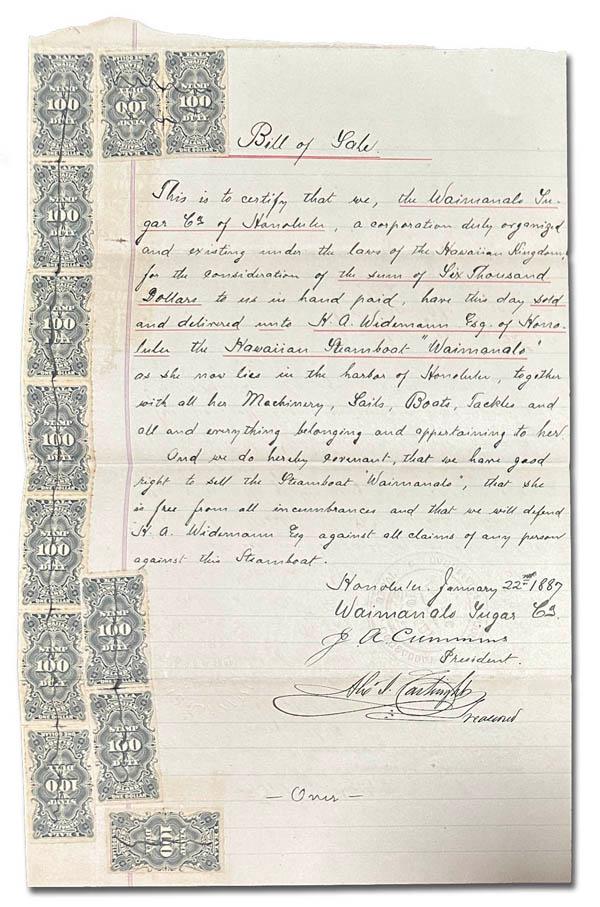 Bill of Sale.
This is to certify that we, the Waimanalo Su-
gar Co of Honolulu, a corporation duly organized
and existing under the laws of the Hawaiian Kingdom,
for the consideration of the sum of Six Thousand
Dollars to us in hand paid, have this day sold
and delivered unto H. A. Widemann Esq. of Hono-
lulu the Hawaiian Steamboat "Waimanalo"
as she now lies in the harbor of Honolulu, together
with all her Machinery, Sails, Boats, Tackles and
all and everything belonging and appertaining to her.
And we do hereby covenant, that we have good
right to sell the Steamboat "Waimanalo", that she
is free from all incumbrances and that we will defend
H. A. Widemann Esq against all claims of any person
against this Steamboat.
Honolulu. January 22nd 1887
Waimanalo Sugar Co.
J. A. Cummins
President.
Alex J. Cartwright
Treasurer
— Over —
STAMP
100
DUTY
STAMP
100
DUTY
STAMP
100
DUTY
STAMP
100
DUTY
STAMP
100
DUTY
STAMP
100
DUTY
STAMP
100
DUTY
STAMP
100
DUTY
STAMP
100
DUTY
STAMP
100
DUTY
STAMP
100
DUTY
STAMP
100
DUTY